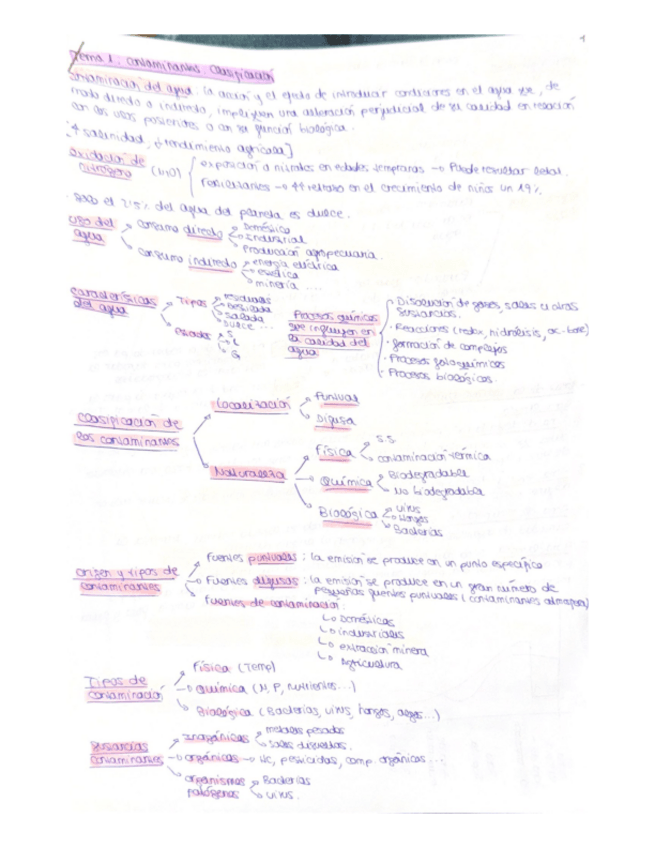 1
Tema 1: Contaminantes. Clasificación
Contaminación del agua: la acción y el efecto de introducir condiciones en el agua que, de
modo directo o indirecto, impliquen una alteración perjudicial de su calidad en relación
con los usos posteriores o con su función biológica.
salinidad, rendimiento agrícola]
Oxidación de nitrógeno
exposición a nitratos en edades tempranas → Puede resultar letal.
Fertilizantes → retraso en el crecimiento de niños un 19%.
· Solo el 2'5% del agua del planeta es dulce.
Uso del agua
consumo directo
Doméstico
Industrial
Producción agropecuaria.
consumo indirecto
energía eléctrica
estética
minería ...
Características del agua
Tipos
residuales
salada
Dulce ...
Estados
S
L
G
Procesos químicos
que influyen en
la calidad del
agua
· Disolución de gases, sales u otras
sustancias.
· Reacciones (redox, hidrólisis, ac-base)
· formación de complejos
· Procesos fotoquímicos
· Procesos biológicos.
Clasificación de
los contaminantes
Localización
Puntual
Difusa
Naturaleza
Física
S.S.
contaminación térmica
Química
Biodegradable
No biodegradable
Biológica
virus
Hongos
Bacterias
Origen y tipos de
contaminantes
Fuentes puntuales: la emisión se produce en un punto específico
Fuentes difusas: la emisión se produce en un gran número de
pequeñas fuentes puntuales (contaminantes atmosfera)
Fuentes de contaminación:
Domésticas
industriales
extracción minera
Agricultura
Tipos de
contaminación
Física (Temp)
Química (N, P, nutrientes...)
Biológica (Bacterias, virus, hongos, algas...)
Sustancias
contaminantes
Inorgánicas
metales pesados
Sales disueltas.
orgánicas → HC, pesticidas, comp. orgánicos...
organismos
patógenos
Bacterias
virus.